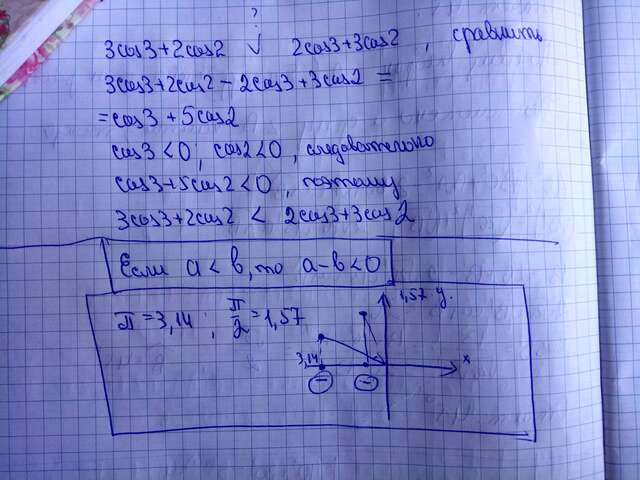 3cos3+2cos2 ∨ 2cos3+3cos2, сравнить
?
3cos3+2cos2-2cos3+3cos2=
=cos3+5cos2
cos3<0, cos2<0, следовательно
cos3+5cos2<0, поэтому
3cos3+2cos2 < 2cos3+3cos2
Если a<b, то a-b<0
π=3,14; π/2=1,57
1,57 y
3,14
x